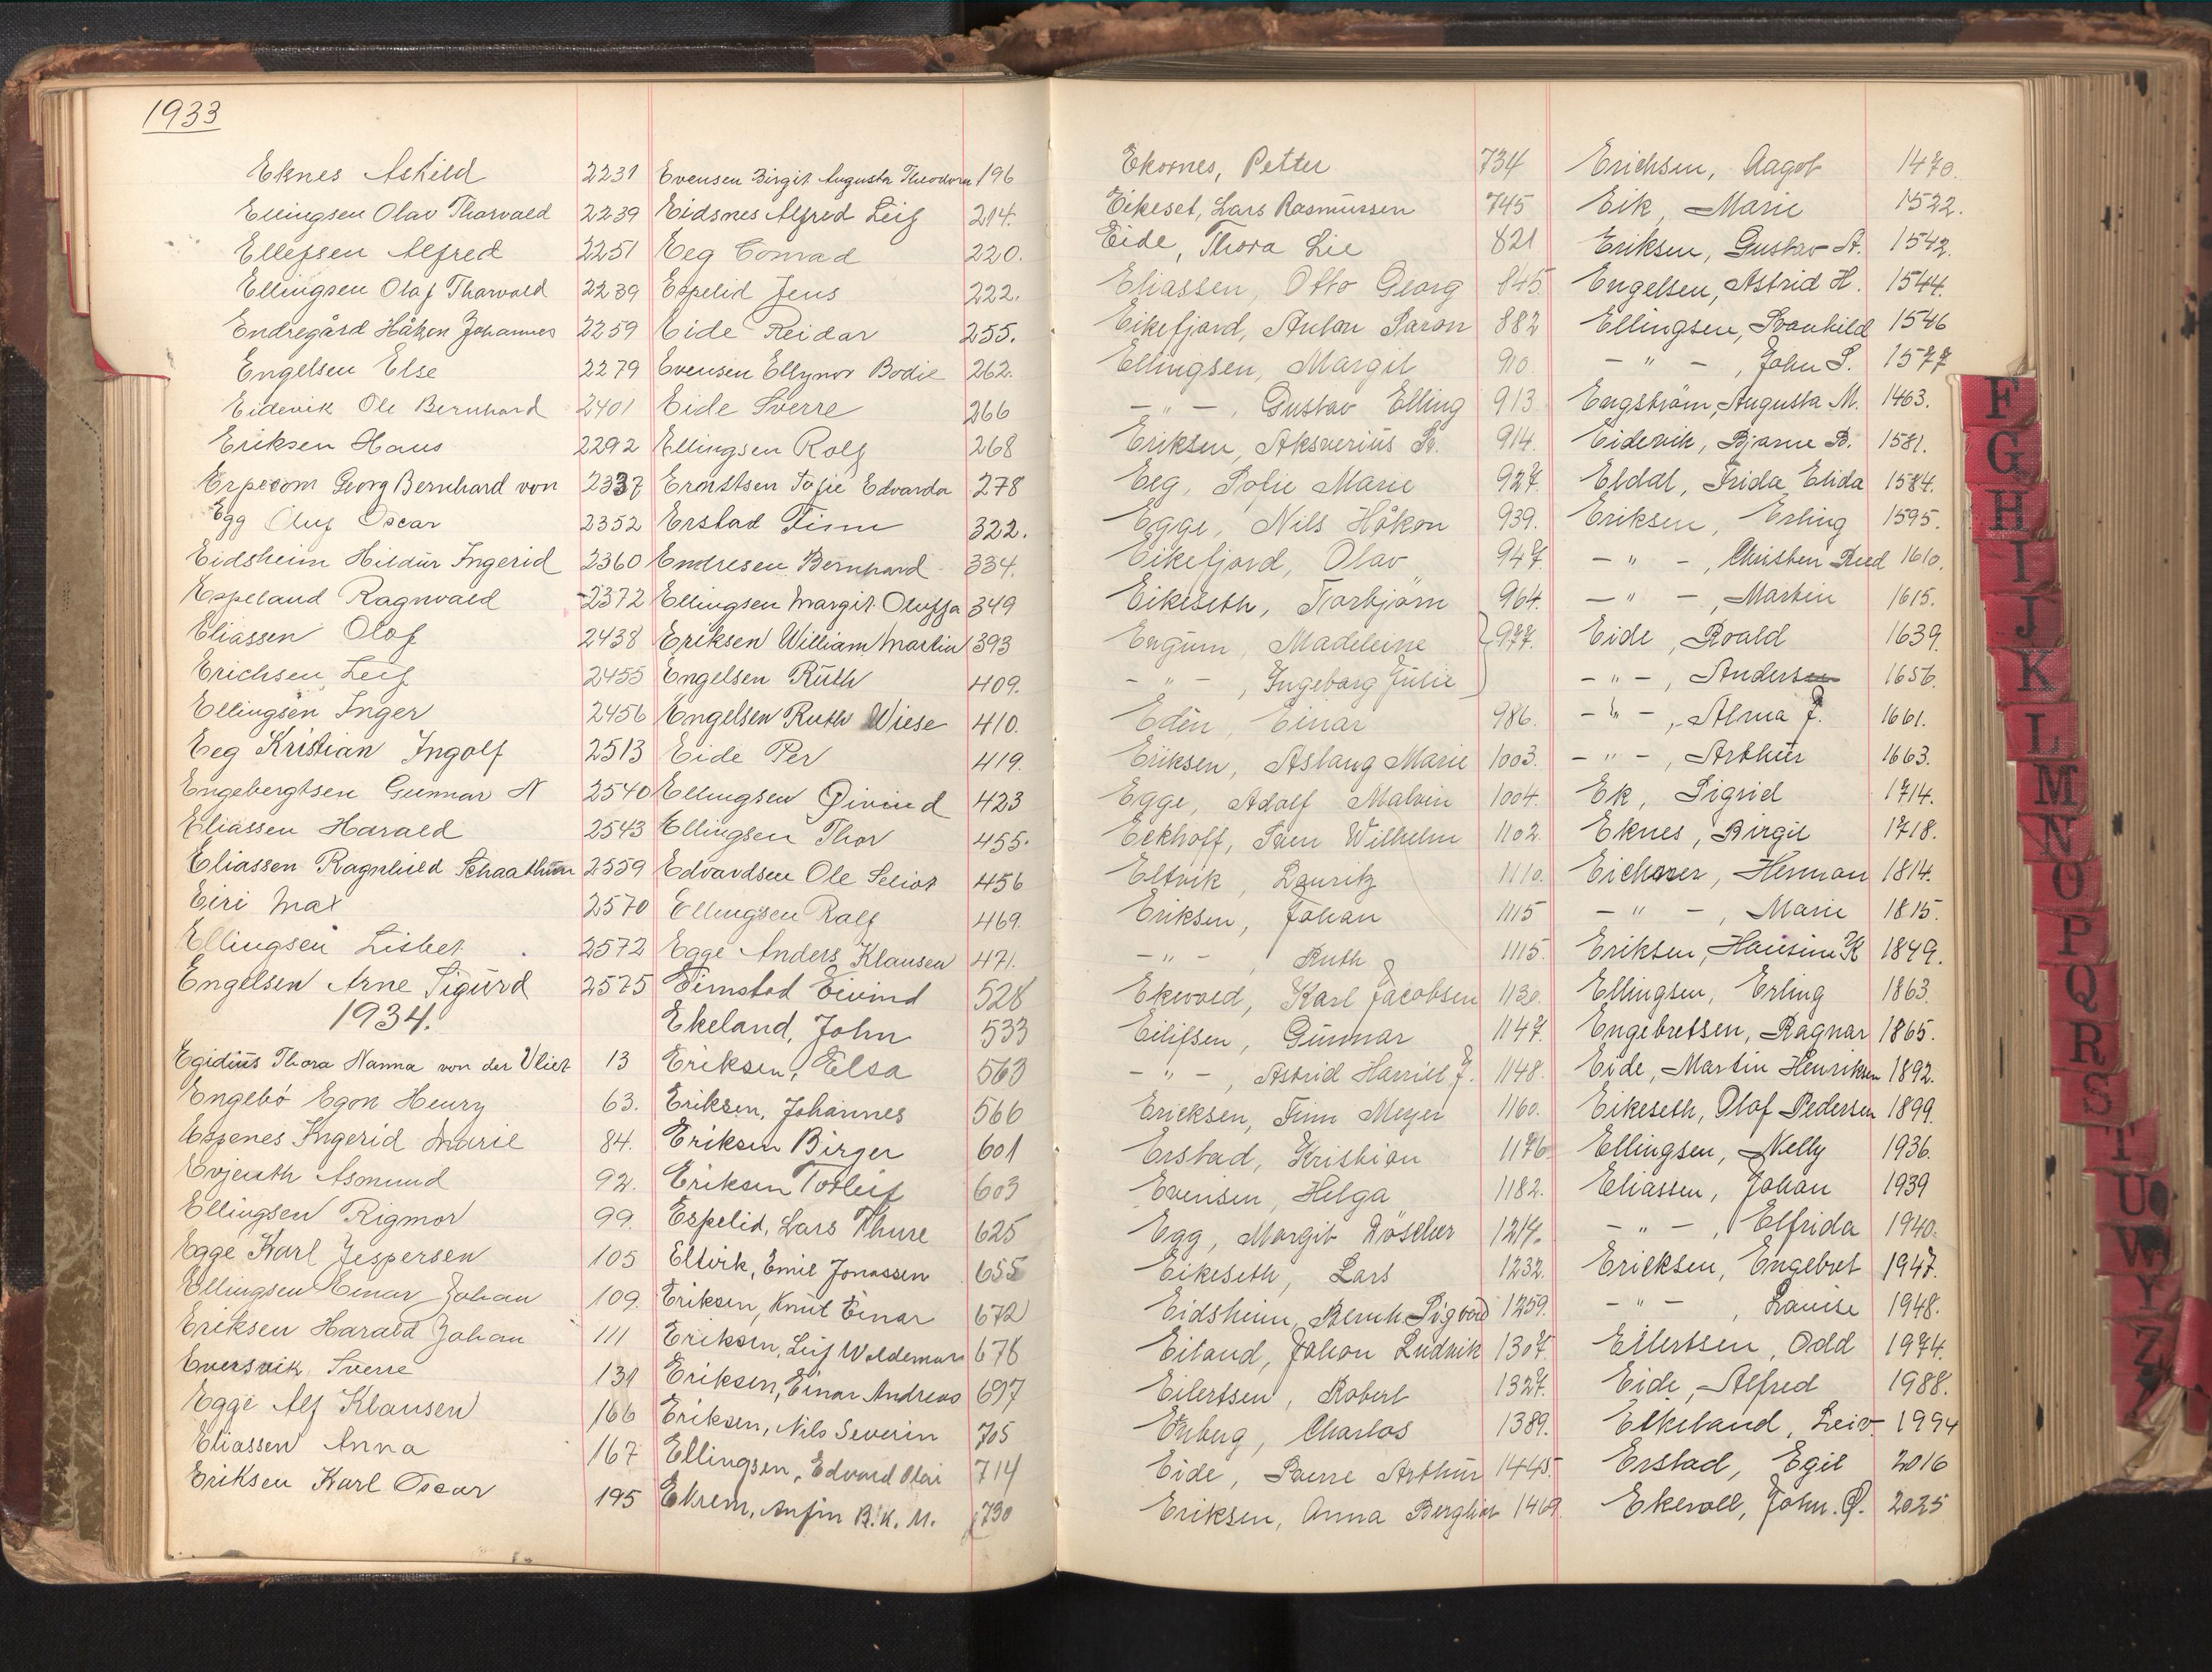 1933
Eknes Askild 2231
Ellingsen Olav Thorvald 2239
Ellefsen Alfred 2251
Ellingsen Olaf Thorvald 2239
Endregård Håkon Johannes 2259
Engelsen Else 2279
Eidevik Ole Bernhard 2401
Eriksen Hans 2292
Erpecom Georg Bernhard von 2337
Egg Oluf Oscar 2352
Eidsheim Hildur Ingerid 2360
Espeland Ragnvald 2372
Eliassen Olof 2438
Erichsen Leif 2455
Ellingsen Inger 2456
Eeg Kristian Ingolf 2513
Engebergtsen Gunnar N 2540
Eliassen Harald 2543
Eliassen Ragnhild Schaathun 2559
Eiri Max 2570
Ellingsen Lisbet 2572
Engelsen Arne Sigurd 2575
1934.
Egidius Thora Nanna von der Vliet 13
Engebó Egon Henry 63.
Espenes Ingerid Marie 84.
Evjenth Asmund 92.
Ellingsen Rigmor 99.
Egge Karl Jespersen 105
Ellingsen Einar Johan 109.
Eriksen Harald Johan 111
Eversvik Sverre 131
Egge Alf Klausen 166
Eliassen Anna 167
Eriksen Karl Oscar 195
Evensen Birgit Augusta Theodora 196
Eidsnes Alfred Leif 214.
Eeg Conrad 220.
Espelid Jens 222.
Eide Reidar 255.
Evensen Ellynor Bodil 262.
Eide Sverre 266
Ellingsen Rolf 268
Ernstsen Tofie Edvarda 278
Erstad Finn 322.
Endresen Bernhard 334.
Ellingsen Margit Oluffa 349
Eriksen William Martin 393
Engelsen Ruth 409.
Engelsen Ruth Wiese 410.
Eide Per 419.
Ellingsen Øivind 423
Ellingsen Thor 455.
Edvardsen Ole Seliot 456
Ellingsen Ralf 469.
Egge Anders Klausen 471.
Eimstad Eivind 528
Ekeland, John 533
Eriksen, Elsa 563
Eriksen, Johannes 566
Eriksen Birger 601
Eriksen Torleif 603
Espelid, Lars Thure 625
Eltvik, Emil Jonassen 655
Eriksen, Knut Einar 672
Eriksen, Leif Waldemar 678
Eriksen, Einar Andreas 697
Eriksen, Nils Severin 705
Ellingsen, Edvard Olai 714
Ekrem, Anfin B. K. M. 730
Ekornes, Petter 734
Eikeset, Lars Rasmussen 745
Eide, Thora Lie 821
Eliassen, Otto Georg 845.
Eikefjord, Anton Saron 882
Ellingsen, Margit 910.
– " – , Gustav Elling 913
Eriksen, Aksverius B. 914.
Eeg, Solie Marie 927.
Egge, Nils Håkon 939.
Eikefjord, Olav 947.
Eikeseth, Torbjörn 964.
Engum, Madeleine 977.
– " – , Ingeborg Julie
Edén, Einar 986.
Eriksen, Aslaug Marie 1003.
Egge, Adolf Malvin 1004.
Eckhoff, Sven Wilhelm 1102.
Eltvik, Lauritz 1110.
Eriksen, Johan 1115
– " – , Ruth 1115.
Ekevold, Karl Jacobsen 1130.
Eilifsen, Gunnar 1147.
– " – , Astrid Harriet J. 1148.
Ericksen, Finn Meyer 1160.
Erstad, Kristian 1176.
Evensen, Helga 1182.
Egg, Margit Döscher 1214.
Eikeseth, Lars 1232.
Eidsheim, Bernh. Sigvard 1259.
Eiland, Johan Ludvik 1307.
Eilertsen, Robert 1327.
Enberg, Charles 1389.
Eide, Sverre Arthur 1445.
Eriksen, Anna Bergliot 1469.
Erichsen, Aagot 1470.
Eik, Marie 1522.
Eriksen, Gustav A. 1542.
Engelsen, Astrid H. 1544.
Ellingsen, Svanhild 1546
– " – , John S. 1577
Engström, Augusta M. 1463.
Eidevik, Bjarne B. 1581.
Eldal, Frida Elida 1584.
Eriksen, Erling 1595.
– " – , Christen Reed 1610.
– " – , Martin 1615.
Eide, Roald 1639.
– " – , Andersen 1656.
– " – , Alma J. 1661.
– " – , Arthur 1663.
Ek, Sigrid 1714.
Eknes, Birgit 1718.
Eichorer, Herman 1814.
– " – , Marie 1815.
Eriksen, Hansine K 1849.
Ellingsen, Erling 1863.
Engebretsen, Ragnar 1865.
Eide, Martin Henriksen 1892.
Eikeseth, Olaf Pedersen 1899.
Ellingsen, Nelly 1936.
Eliassen, Johan 1939
– " – , Elfrida 1940.
Ericksen, Engebret 1947.
– " – , Louise 1948.
Eilertsen, Odd 1974.
Eide, Alfred 1988.
Elkeland, Leiv 1994
Erstad, Egil 2016
Ekevoll, John. Q. 2025
F
G
H
I
J
K
L
M
N
O
P
Q
R
S
T
U
W
Y
Z